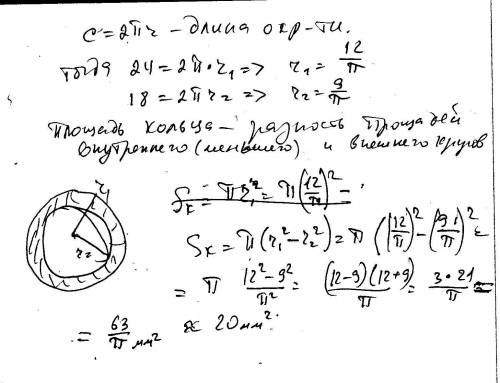 C = 2πr – длина окр-ти.
тогда 24 = 2π·r₁ => r₁ = 12/π
18 = 2πr₂ => r₂ = 9/π
Площадь кольца – разность площадей
внутреннего (меньшего) и внешнего кругов
Sк = πr₁² = π(12/π)² –
r₁
r₂
Sк = π(r₁² – r₂²) = π((12/π)² – (9/π)²) =
= π (12² – 9²)/π² = (12–9)(12+9)/π = 3·21/π =
= 63/π мм² ≈ 20 мм².